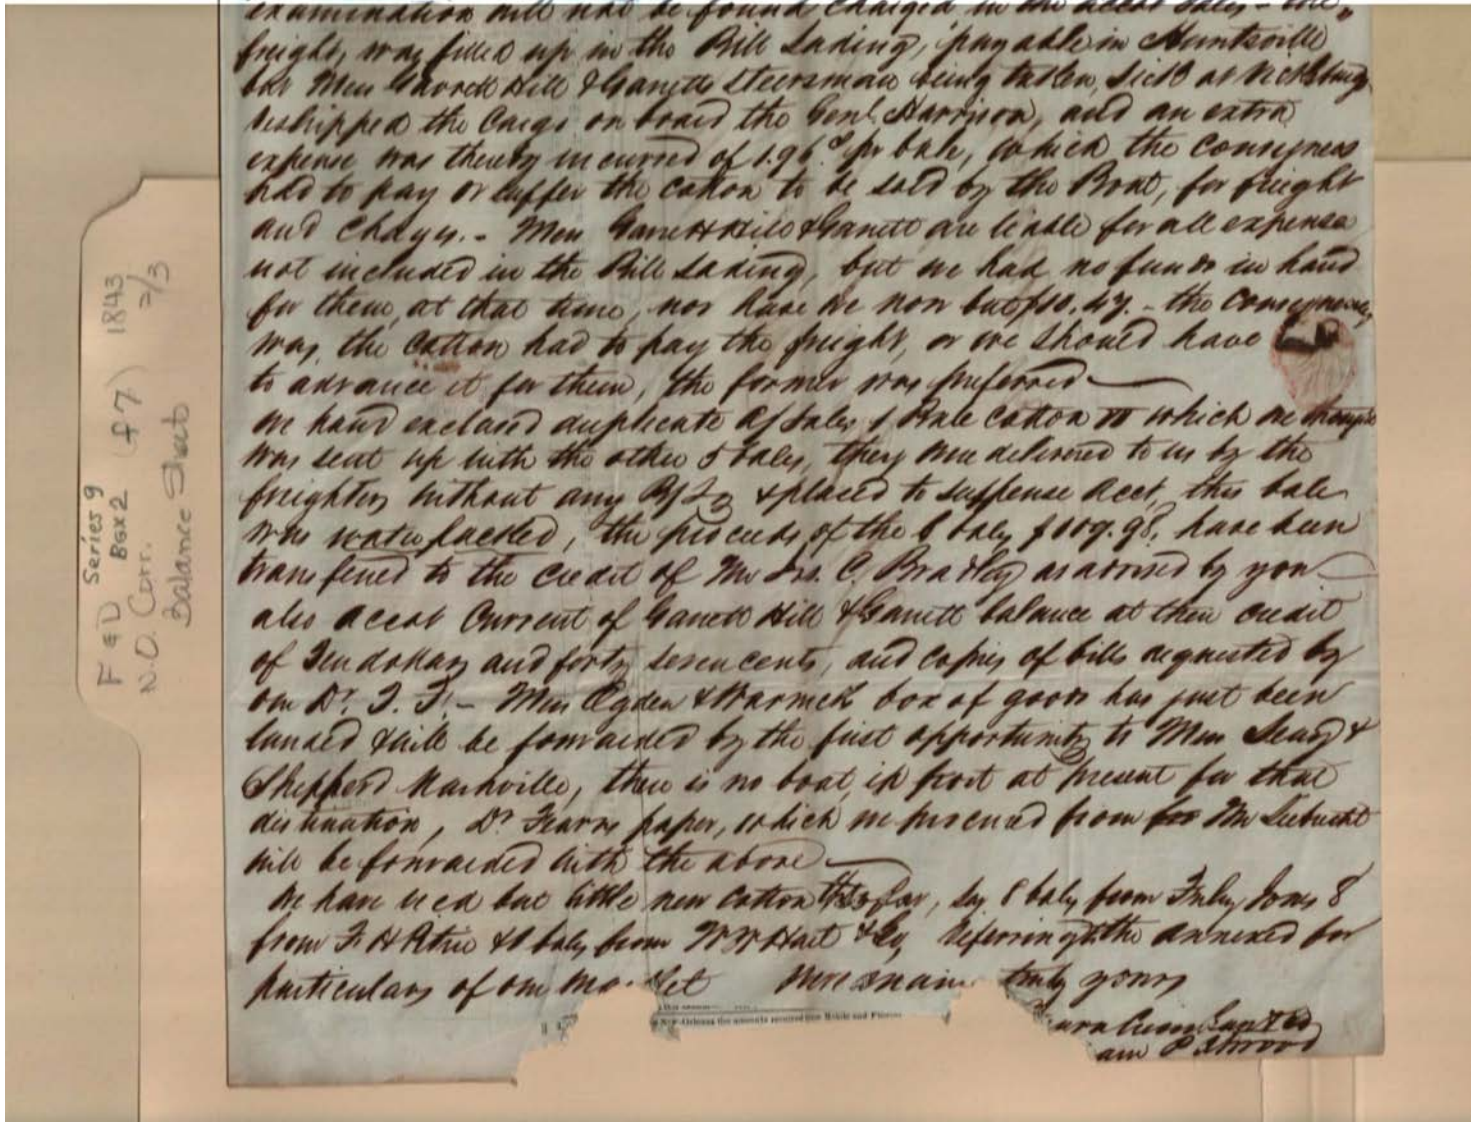 examination will not be found charged in the accot sales - the
freight, was filled up in the Bill Lading, payable in Huntsville
but Mess Garrett Hill & Garretts steersman being taken, sick at Vicksburg
reshipped the Cargo on board the Genl. Harrison, and an extra
expense was thereby incurred of 1.96 pr bale, which the consignees
had to pay or suffer the cotton to be sold by the Boat, for freight
and Chags. - Mess Garrett Hill & Garrett are liable for all expense
not included in the Bill Lading, but we had no funds in hand
for them, at that time, nor have we now but $10.47. - the consequence
was, the Cotton had to pay the freight, or we should have
to advance it for them, the former was preferred
We hand enclosed duplicate a/sales 1 Bale cotton which we
was sent up with the other 5 bales, they were delivered to us by the
freighters without any B/L & placed to suspense acct, this bale
was water packed, the proceeds of the 6 bales $109.98, have been
transferred to the credit of Mr Jas. C. Bradley as advised by you
also accot Current of Garrett Hill & Garrett balance at their credit
of Ten dollars and forty seven cents, and copies of bills requested by
our Dr. T. F. - Mess Ogden & Warwick box of goods has just been
landed & will be forwarded by the first opportunity to Mess &
Shepperd Nashville, there is no boat in port at present for that
destination, Dr Fearns paper, which we procured from Mr
will be forwarded with the above
We have recd but little new cotton thus far, say 8 bales from Jones 8
from F H & bales from W W Hart & Co, Referring to the annexed for
particulars of our market We remain truly yours
New-Orleans the amounts required
F & D Series 9
Box 2 (f 7) 1843
N.O. Corr. 2/3
Balance Sheet